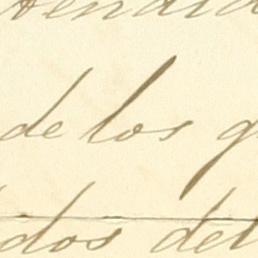 de los g
dos del